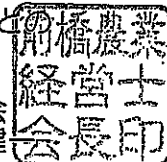 前橋農業
経営士
会長印